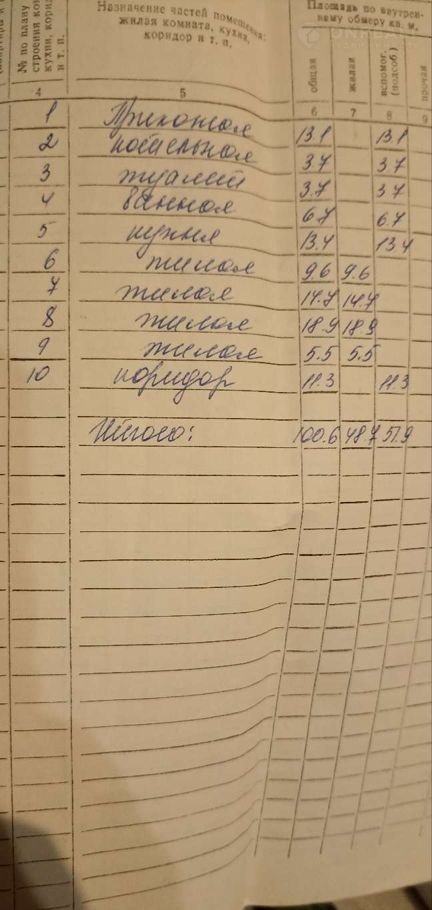 № по плану
строения
кухни, корид
и т. п.
Назначение частей помещения:
жилая комната, кухня,
коридор и т. п.
Площадь по внутрен-
нему обмеру кв. м.
общая
жилая
вспомог.
(подсоб.)
прочая
4 5 6 7 8 9
1 Прихожая 13.1 13.1
2 котельная 3.7 3.7
3 туалет 3.7 3.7
4 ванная 6.7 6.7
5 кухня 13.4 13.4
6 жилая 9.6 9.6
7 жилая 14.7 14.7
8 жилая 18.9 18.9
9 жилая 5.5 5.5
10 коридор 11.3 11.3
Итого: 100.6 48.7 51.9